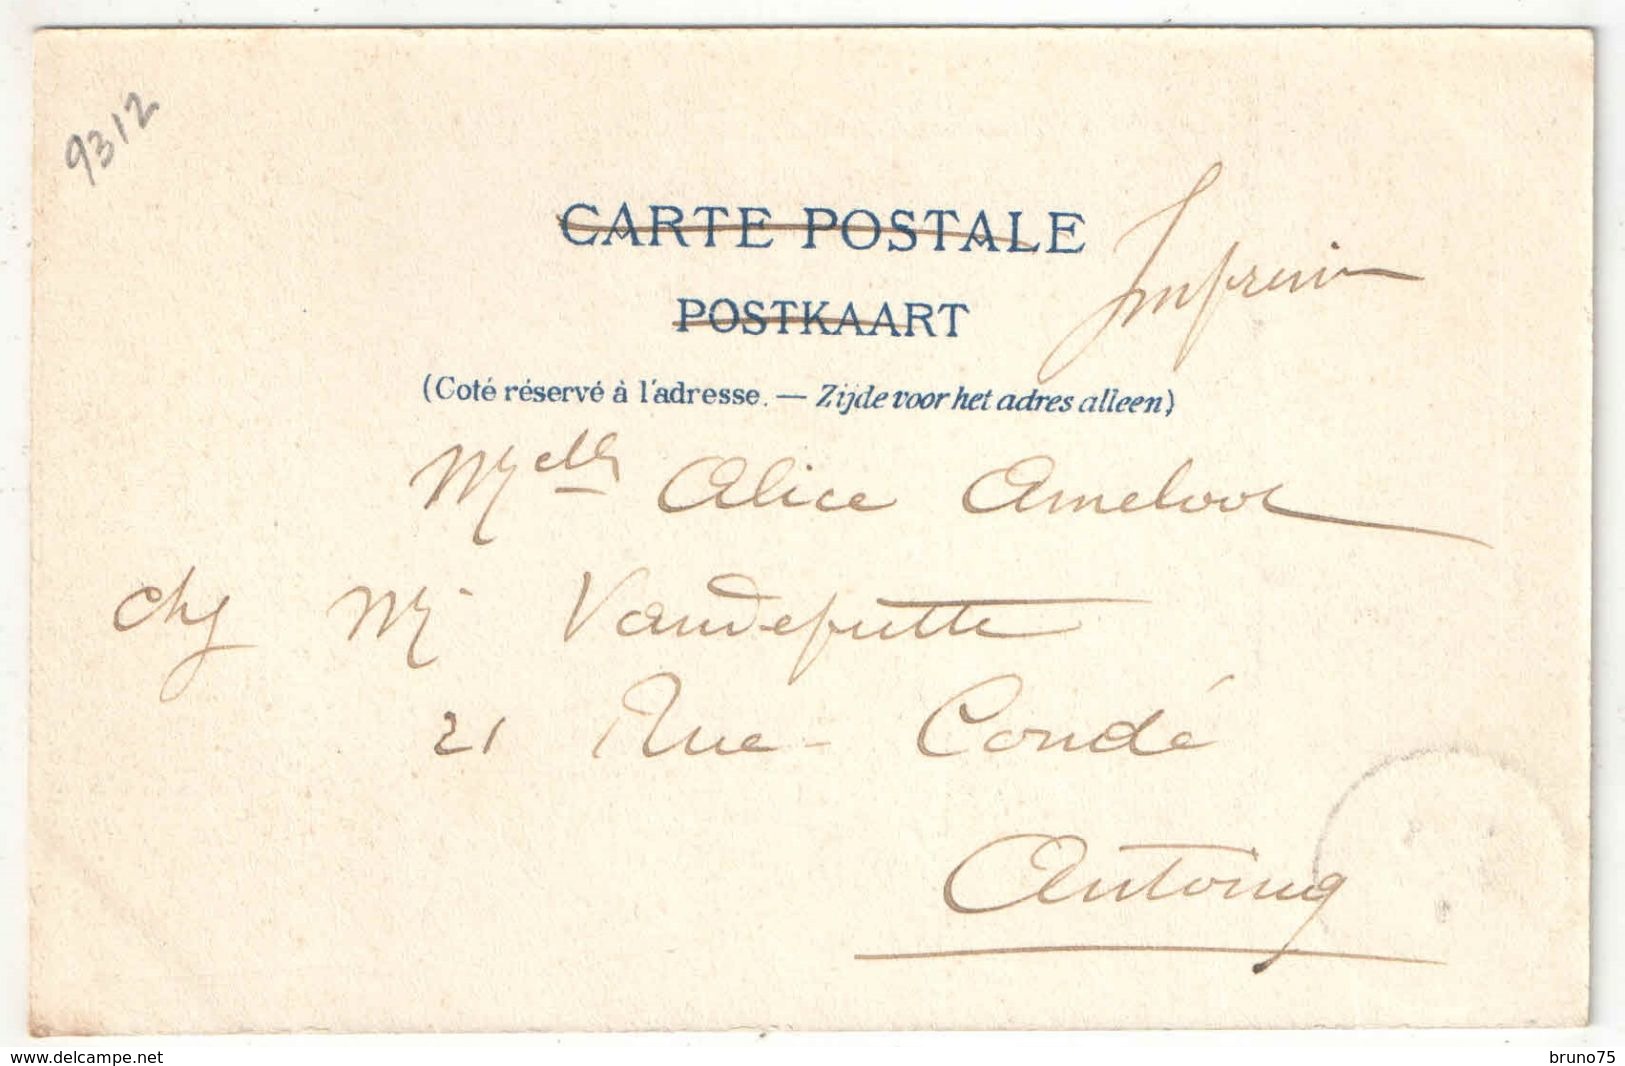 9312
CARTE POSTALE
POSTKAART
(Coté réservé à l'adresse. — Zijde voor het adres alleen)
Melle Alice Ameloot
chz Mr Vandeputte
21 Rue - Condé
Antoing
www.delcampe.net
bruno75